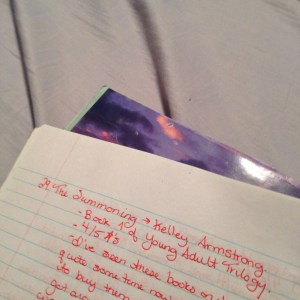 The Summoning → Kelley Armstrong
- Book 1 of Young Adult Trilogy.
- 4/5 #'s
- I've seen these books on
quite some time now
to buy them
get aro